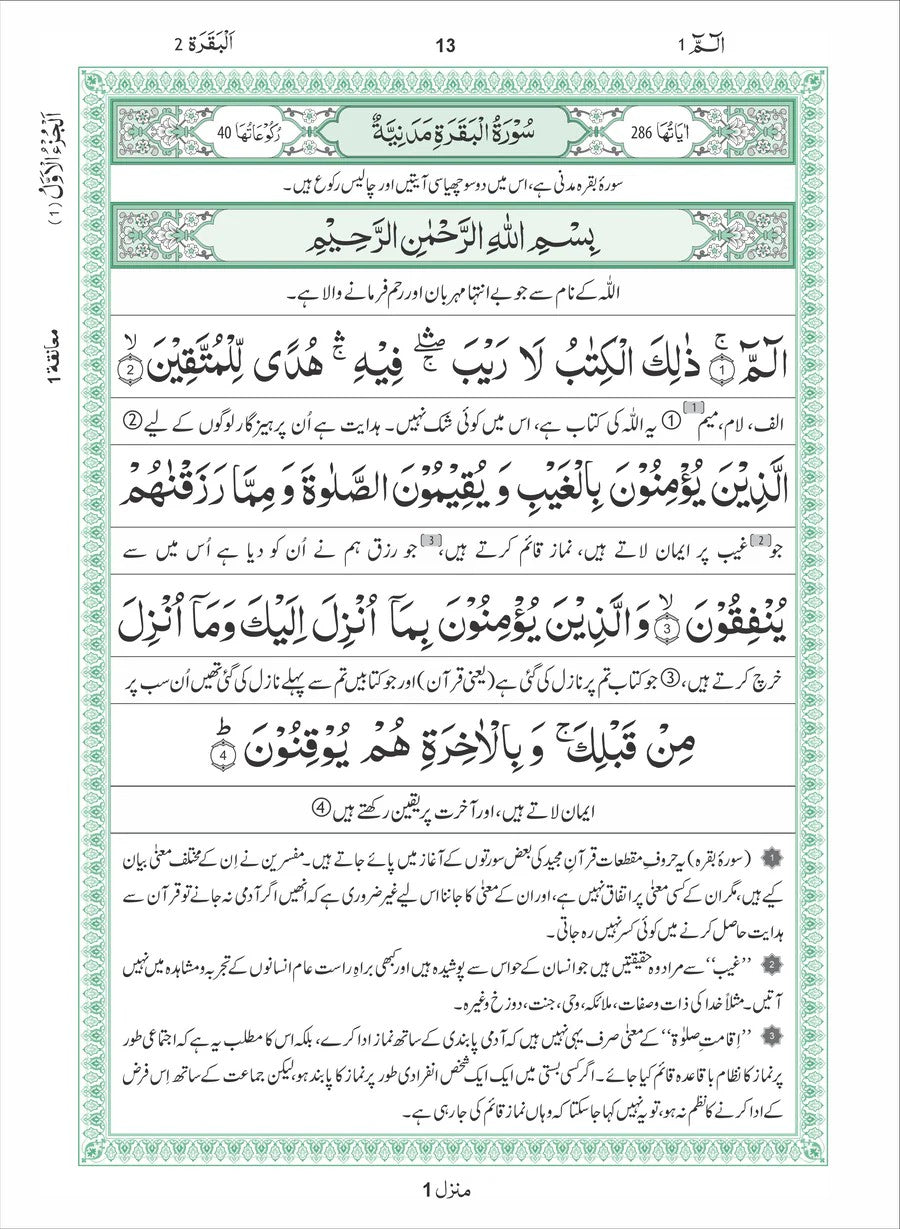 الٓـمّٓ 1
13
اَلْبَقَرَة 2
اٰيَاتُهَا 286
سُوْرَةُ الْبَقَرَةِ مَدَنِيَّةٌ
رُكُوْعَاتُهَا 40
اَلْجُزْءُ الْاَوَّلُ (1)
سورۂ بقرہ مدنی ہے، اس میں دو سو چھیاسی آیتیں اور چالیس رکوع ہیں۔
بِسْمِ اللّٰهِ الرَّحْمٰنِ الرَّحِيْمِ
اللّٰہ کے نام سے جو بے انتہا مہربان اور رحم فرمانے والا ہے۔
معانقة 1
الٓمّٓ ۚ ﴿1﴾ ذٰلِكَ الْكِتٰبُ لَا رَيْبَ ۛۖۚ فِيْهِ ۛۚ هُدًى لِّلْمُتَّقِيْنَ ۙ ﴿2﴾
الف، لام، میم [1] ① یہ اللّٰہ کی کتاب ہے، اس میں کوئی شک نہیں۔ ہدایت ہے اُن پرہیز گار لوگوں کے لیے ②
الَّذِيْنَ يُؤْمِنُوْنَ بِالْغَيْبِ وَ يُقِيْمُوْنَ الصَّلٰوةَ وَ مِمَّا رَزَقْنٰهُمْ
جو [2] غیب پر ایمان لاتے ہیں، نماز قائم کرتے ہیں، [3] جو رزق ہم نے اُن کو دیا ہے اُس میں سے
يُنْفِقُوْنَ ۙ ﴿3﴾ وَ الَّذِيْنَ يُؤْمِنُوْنَ بِمَاۤ اُنْزِلَ اِلَيْكَ وَمَاۤ اُنْزِلَ
خرچ کرتے ہیں، ③ جو کتاب تم پر نازل کی گئی ہے (یعنی قرآن) اور جو کتابیں تم سے پہلے نازل کی گئی تھیں اُن سب پر
مِنْ قَبْلِكَ ۚ وَ بِالْاٰخِرَةِ هُمْ يُوْقِنُوْنَ ؕ ﴿4﴾
ایمان لاتے ہیں، اور آخرت پر یقین رکھتے ہیں ④
1 (سورۂ بقرہ) یہ حروفِ مقطعات قرآنِ مجید کی بعض سورتوں کے آغاز میں پائے جاتے ہیں۔ مفسرین نے اِن کے مختلف معنٰی بیان
کیے ہیں، مگر ان کے کسی معنٰی پر اتفاق نہیں ہے، اور ان کے معنٰی کا جاننا اس لیے غیر ضروری ہے کہ انھیں اگر آدمی نہ جانے تو قرآن سے
ہدایت حاصل کرنے میں کوئی کسر نہیں رہ جاتی۔
2 ”غیب“ سے مراد وہ حقیقتیں ہیں جو انسان کے حواس سے پوشیدہ ہیں اور کبھی براہِ راست عام انسانوں کے تجربہ و مشاہدہ میں نہیں
آتیں۔ مثلاً خدا کی ذات و صفات، ملائکہ، وحی، جنت، دوزخ وغیرہ۔
3 ”اِقامتِ صلوٰۃ“ کے معنٰی صرف یہی نہیں ہیں کہ آدمی پابندی کے ساتھ نماز ادا کرے، بلکہ اس کا مطلب یہ ہے کہ اجتماعی طور
پر نماز کا نظام باقاعدہ قائم کیا جائے۔ اگر کسی بستی میں ایک ایک شخص انفرادی طور پر نماز کا پابند ہو، لیکن جماعت کے ساتھ اِس فرض
کے ادا کرنے کا نظم نہ ہو، تو یہ نہیں کہا جا سکتا کہ وہاں نماز قائم کی جا رہی ہے۔
منزل 1